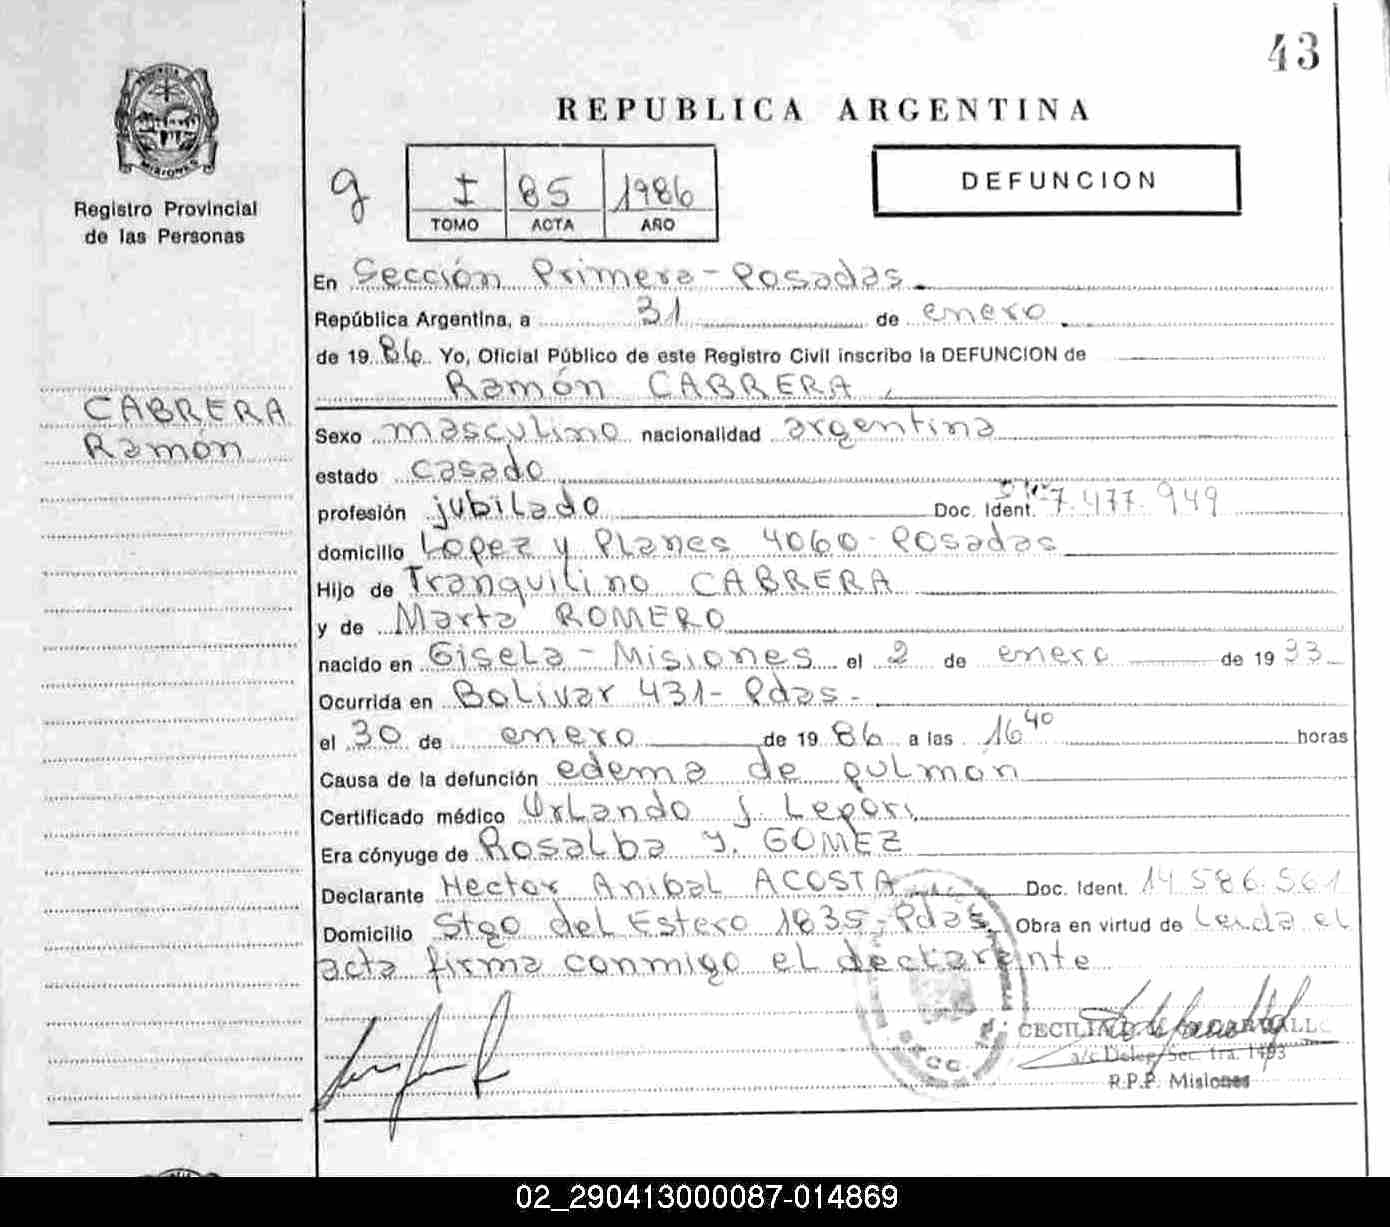 43
REPUBLICA ARGENTINA
PROVINCIA DE MISIONES
Registro Provincial
de las Personas
g
I 85 1986
TOMO ACTA AÑO
DEFUNCION
En Sección Primera - Posadas.
República Argentina, a 31 de enero
de 19 86 Yo, Oficial Público de este Registro Civil inscribo la DEFUNCION de
Ramón CABRERA
CABRERA
Ramón
Sexo masculino nacionalidad argentina
estado casado
profesión jubilado Doc. Ident. 7.477.949
domicilio Lopez y Planes 4060 - Posadas
Hijo de Tranquilino CABRERA
y de Marta ROMERO
nacido en Gisela - Misiones el 2 de enero de 19 33
Ocurrida en Bolivar 431 - Pdas -
el 30 de enero de 19 86 a las 16 40 horas
Causa de la defunción edema de pulmon
Certificado médico Orlando J. Lepori
Era cónyuge de Rosalba Y. GOMEZ
Declarante Hector Anibal ACOSTA Doc. Ident. 14.586.561
Domicilio Stgo del Estero 1835 - Pdas. Obra en virtud de Leida el
acta firma conmigo el declarante
SECC. 1a
CECILIA
a/c Deleg. Sec. 1ra. 1493
R.P.P. Misiones
02_290413000087-014869